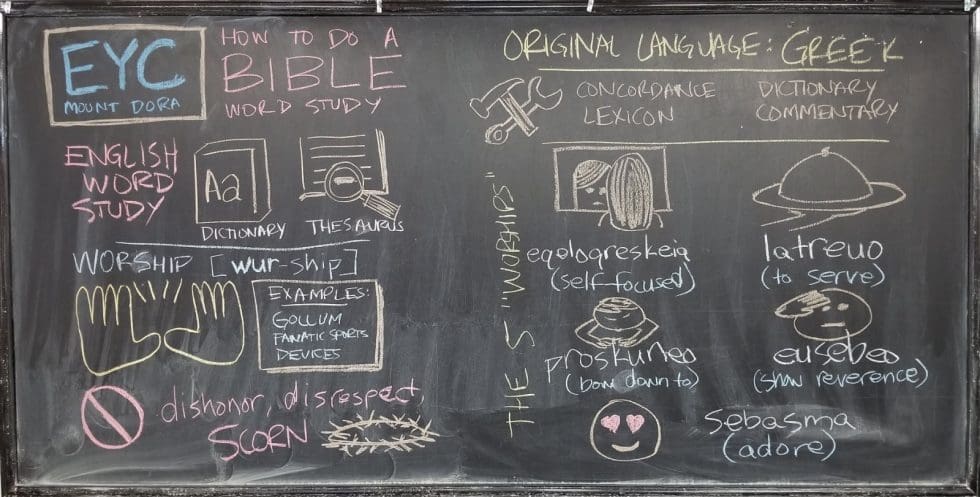 EYC
MOUNT DORA
HOW TO DO A
BIBLE
WORD STUDY
ENGLISH
WORD
STUDY
Aa
DICTIONARY
THESAURUS
WORSHIP [wur-ship]
EXAMPLES:
GOLLUM
FANATIC SPORTS
DEVICES
dishonor, disrespect,
SCORN
ORIGINAL LANGUAGE: GREEK
CONCORDANCE
LEXICON
DICTIONARY
COMMENTARY
THE 5 "WORSHIPS"
egologreskeia
(self-focused)
latreuo
(to serve)
proskuneo
(bow down to)
eusebeo
(show reverence)
sebasma
(adore)